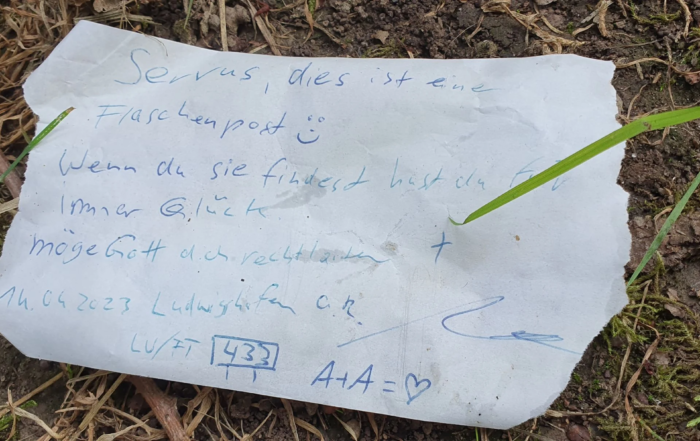 Servus, dies ist eine
Flaschenpost :)
Wenn du sie findest hast du für
immer Glück
möge Gott dich rechtleiten †
14.04.2023 Ludwigshafen a.R.
LU/FT 433
A+A=♡